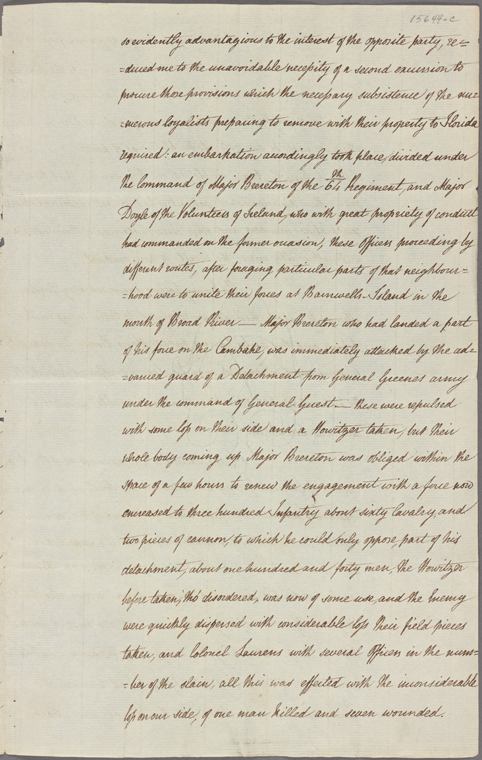 15699-c
so evidently advantagious to the interest of the opposite party, re=
=duced me to the unavoidable necessity of a second excursion to
procure those provisions which the necessary subsistence of the nu=
=merous loyalists preparing to remove with their property to Florida
required: an embarkation accordingly took place, divided under
the Command of Major Brereton of the 64th Regiment, and Major
Doyle of the Volunteers of Ireland, who with great propriety of conduct
had commanded on the former occasion; these Officers proceeding by
different routes, after foraging particular parts of that neighbour=
=hood were to unite their forces at Barnwells-Island in the
mouth of Broad River — Major Brereton who had landed a part
of his force on the Cambahé, was immediately attacked by the ad=
=vanced guard of a Detachment from General Greenes army
under the command of General Guest — these were repulsed
with some loss on their side and a Howitzer taken, but their
whole body coming up Major Brereton was obliged within the
space of a few hours to renew the engagement with a force now
encreased to three hundred Infantry about sixty Cavalry, and
two pieces of cannon, to which he could only oppose part of his
detachment, about one hundred and forty men, the Howitzer
before taken, tho' disordered, was now of some use, and the Enemy
were quickly dispersed with considerable loss their field pieces
taken, and Colonel Laurens with several Officers in the num=
=ber of the slain, all this was effected with the inconsiderable
loss on our side, of one man killed and seven wounded.